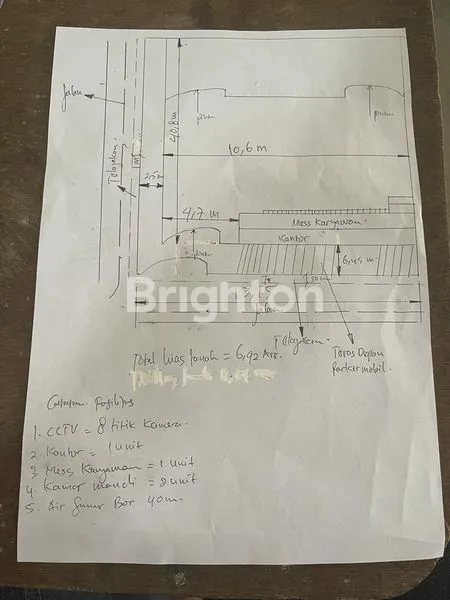 Jalan
Telajakan.
40,8 m
pintu
pintu
10,6 m
2,5 m
4,7 m
Mess Karyawan.
Kantor
6,45 m
Brighton
Telajakan.
Teras Depan
Parkir mobil.
Total luas tanah = 6,92 Are.
1. CCTV = 8 titik Kamera.
2. Kantor = 1 unit
3. Mess Karyawan = 1 unit
4. Kamar mandi = 2 unit
5. Air Sumur Bor 40 m.